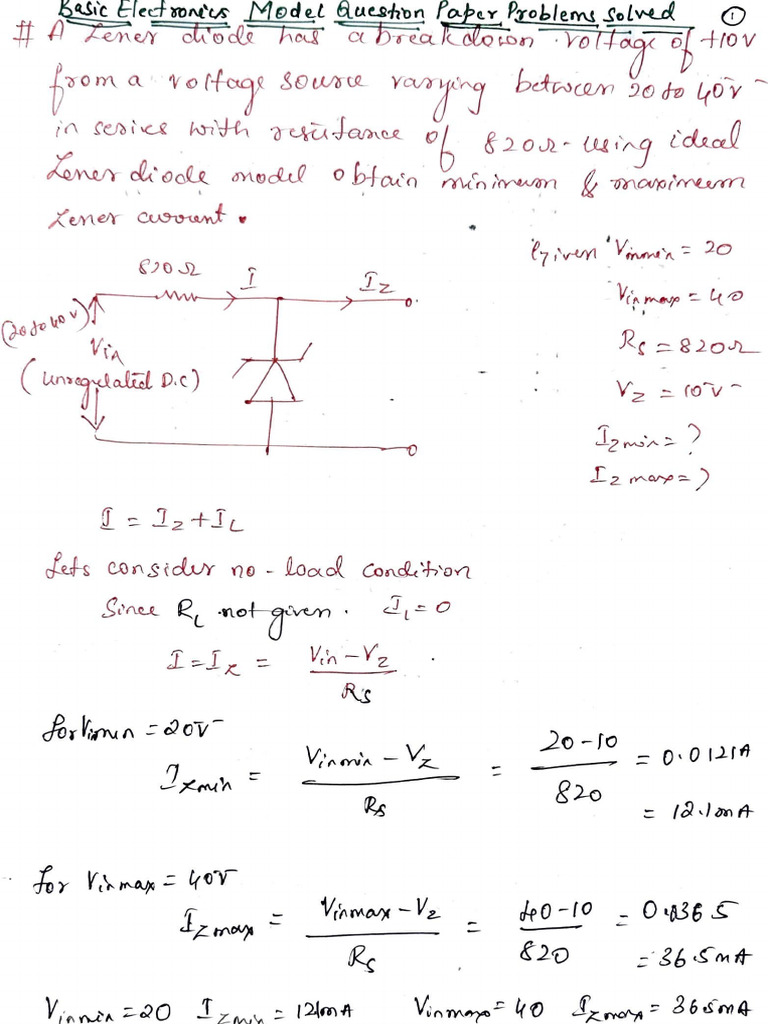 Basic Electronics Model Question Paper Problems Solved ①
# A Zener diode has a breakdown voltage of +10V
from a voltage source varying between 20 to 40V
in series with resistance of 820Ω - using ideal
Zener diode model obtain minimum & maximum
Zener current.
Given Vinmin = 20
Vinmax = 40
Rs = 820Ω
Vz = 10V
Izmin = ?
Iz max = ?
820Ω I Iz
(20 to 40V)
Vin
(unregulated D.C)
I = Iz + IL
Lets consider no-load condition
Since RL not given. IL = 0
I = Iz = Vin - Vz / Rs
for Vinmin = 20V
Izmin = Vinmin - Vz / Rs = 20-10 / 820 = 0.0121A
= 12.1mA
for Vinmax = 40V
Izmax = Vinmax - Vz / Rs = 40-10 / 820 = 0.0365
= 36.5mA
Vinmin = 20 Izmin = 121mA Vinmax = 40 Izmax = 36.5mA